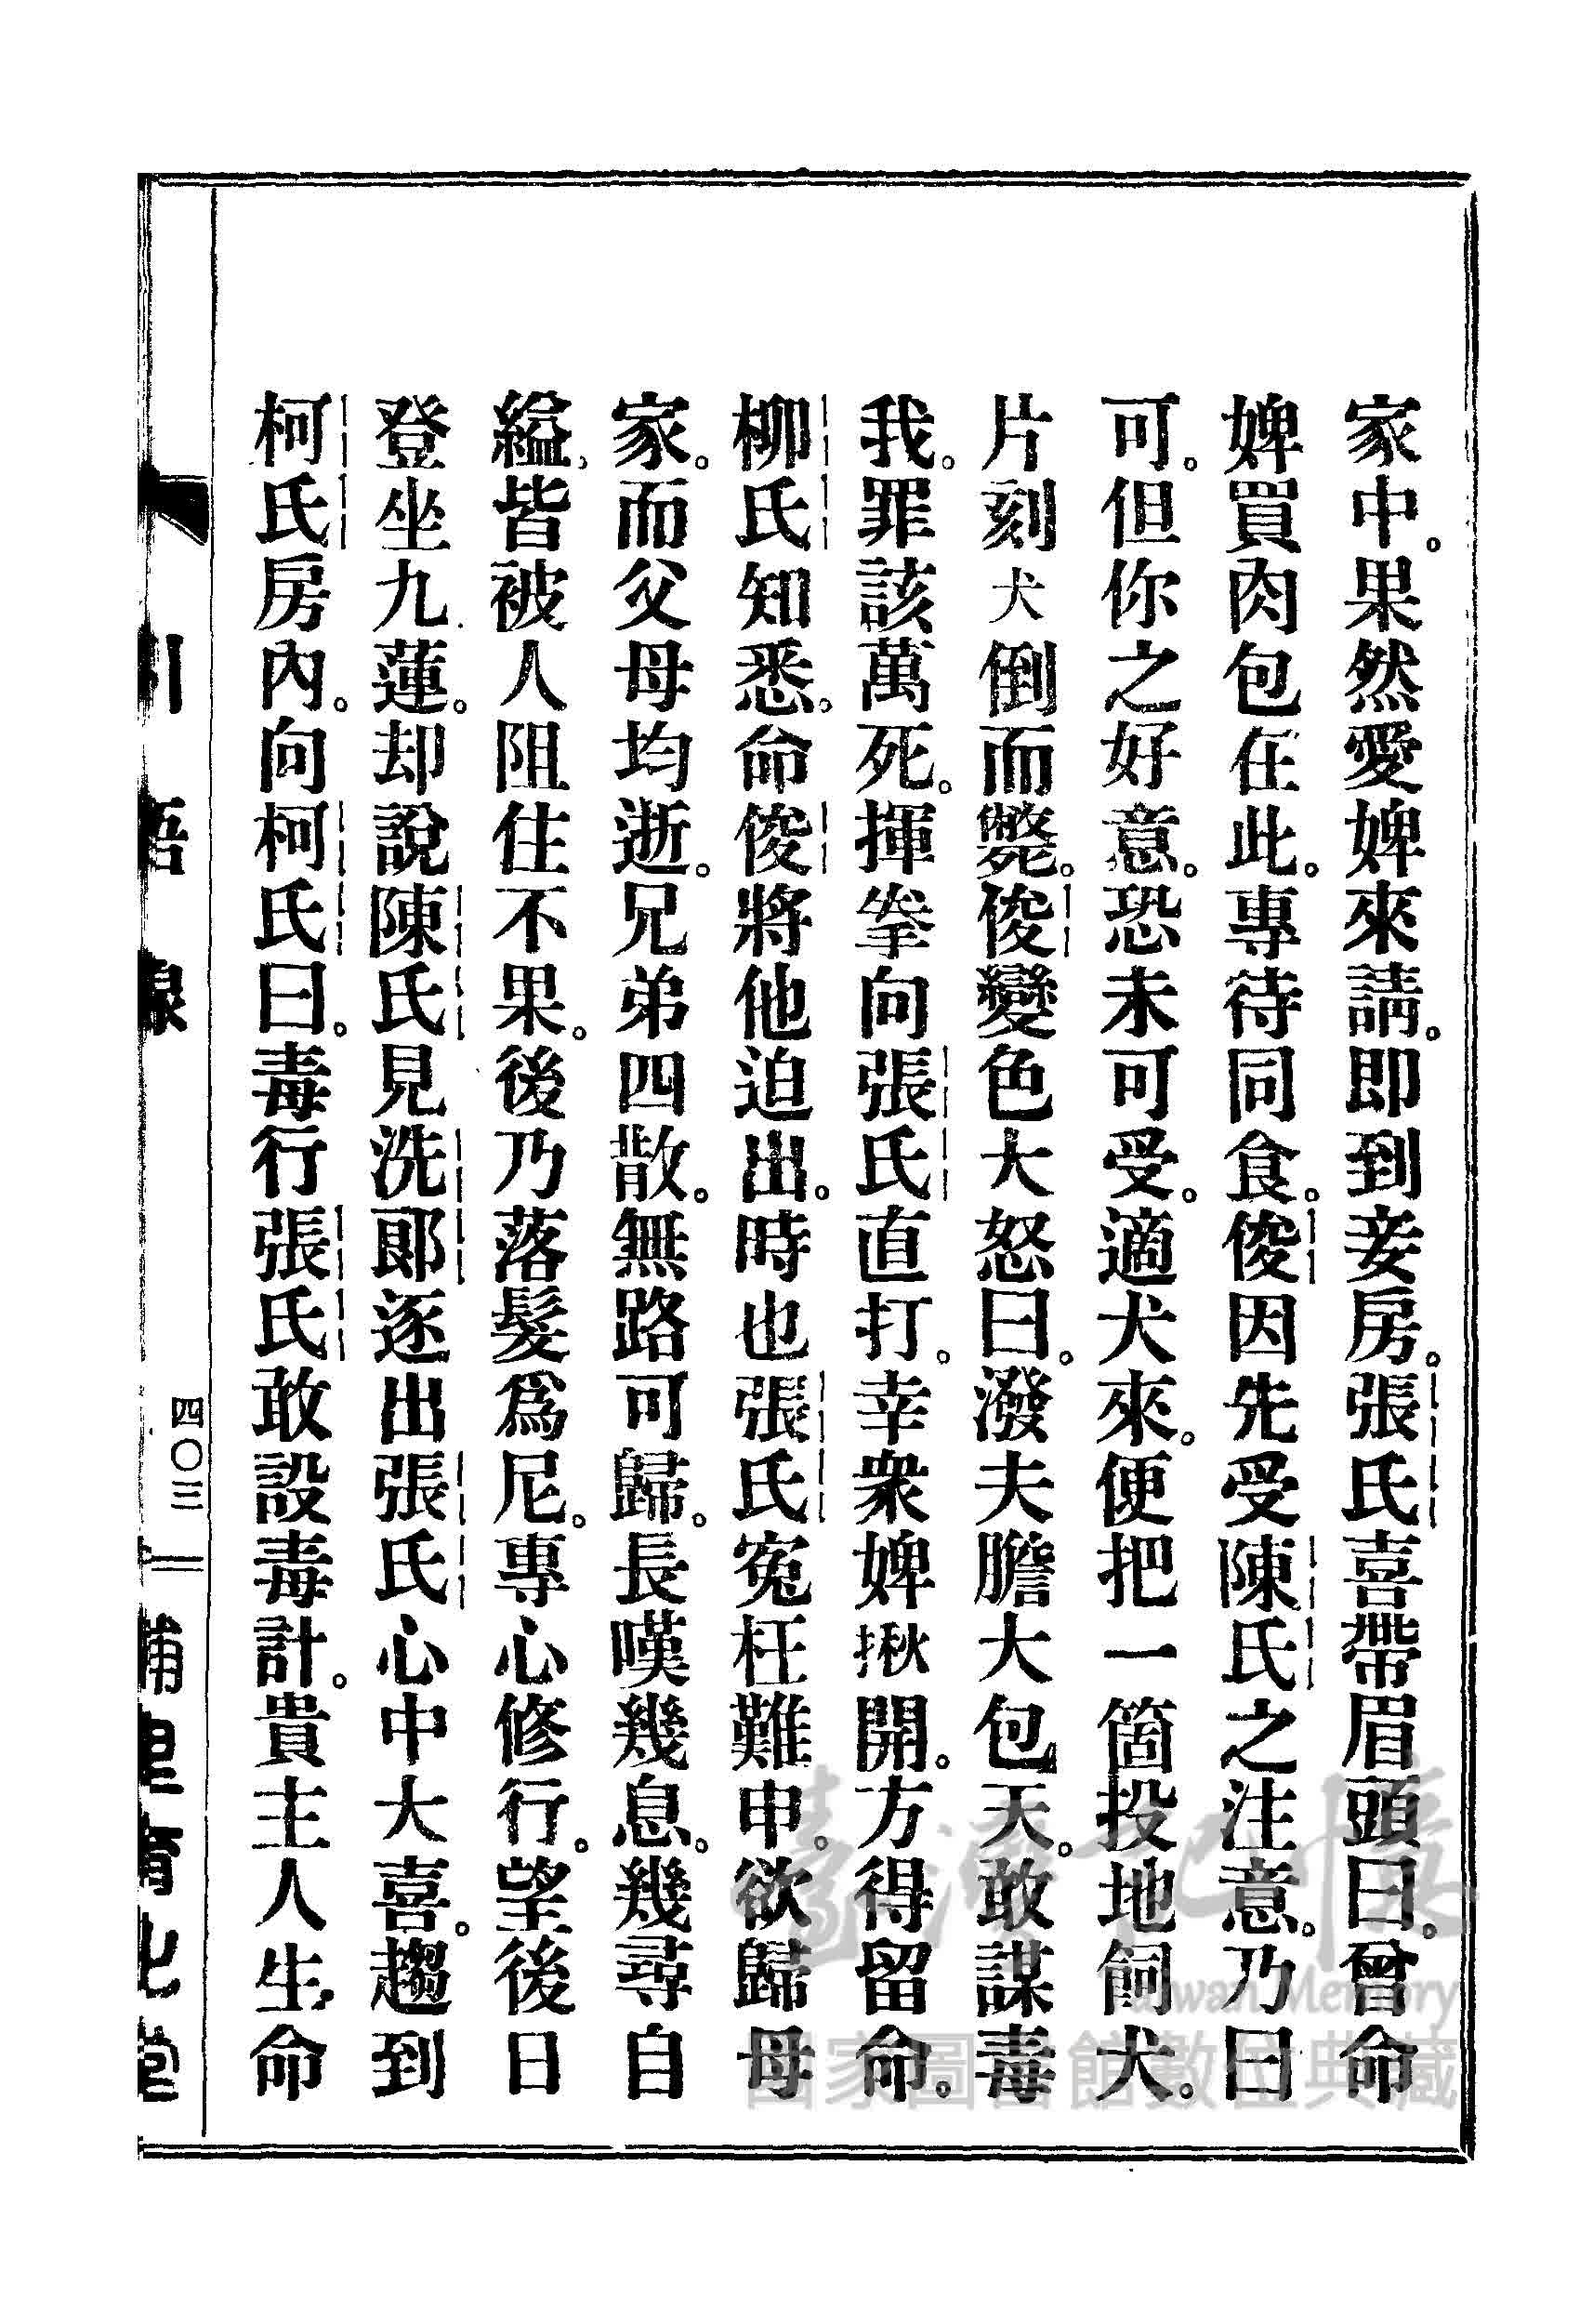 家中。果然愛婢來請。即到妾房。張氏喜帶眉頭曰。曾命
婢買肉包在此。專待同食。俊因先受陳氏之注意。乃曰
可。但你之好意。恐未可受。適犬來。便把一箇投地飼犬。
片刻犬倒而斃。俊變色大怒曰。潑夫膽大包天。敢謀毒
我。罪該萬死。揮拳向張氏直打。幸衆婢揪開。方得留命。
柳氏知悉。命俊將他迫出。時也張氏寃枉難申。欲歸母
家。而父母均逝。兄弟四散。無路可歸。長嘆幾息。幾尋自
縊、皆被人阻住不果。後乃落髮爲尼。專心修行。望後日
登坐九蓮。却說陳氏見洗郎逐出張氏心中大喜。趨到
柯氏房內。向柯氏曰。毒行張氏敢設毒計。貴主人生命
四〇三
臺灣記憶
Taiwan Memory
國家圖書館數位典藏